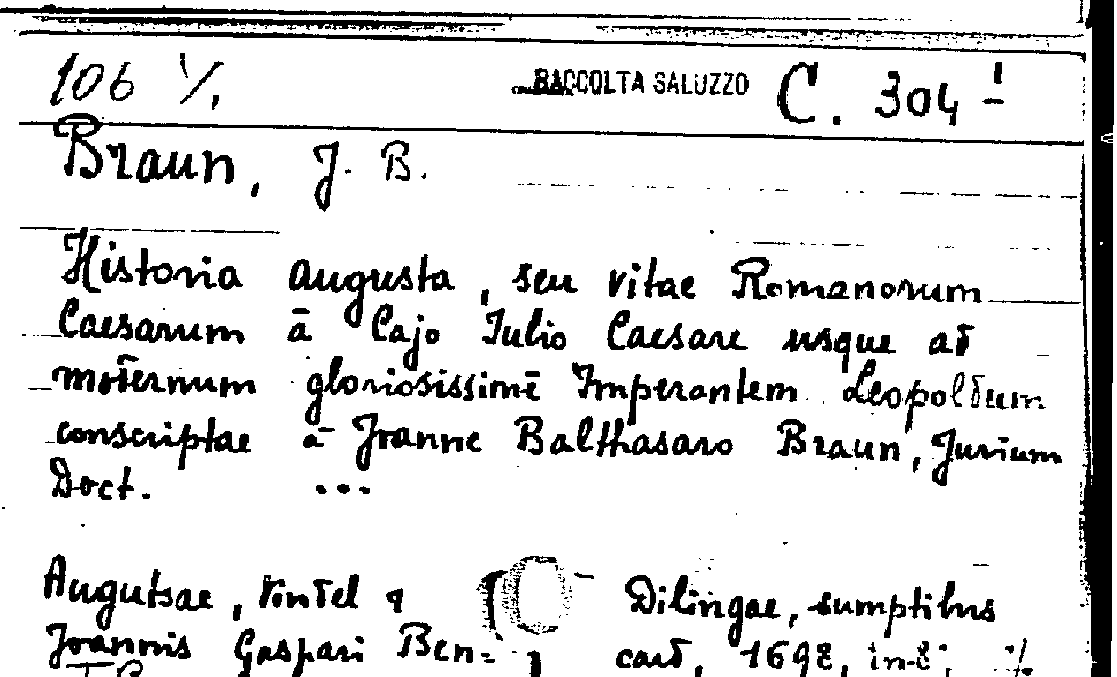 106 1/1 RACCOLTA SALUZZO C. 304 1
Braun, J. B.
Historia augusta, seu vitae Romanorum
Caesarum ā Cajo Iulio Caesare usque ad
modernum gloriosissimē Imperantem Leopoldum
conscriptae ā Joanne Balthasaro Braun, Jurium
Doct. ...
Augutsae, Vindel & Dilingae, sumptibus
Joannis Gaspari Ben- card, 1698, in-8°,